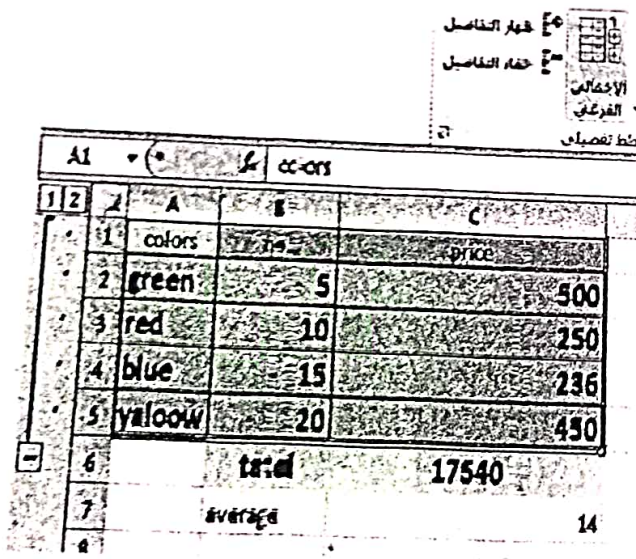 إظهار التفاصيل
إخفاء التفاصيل
الإجمالي
الفرعي
مخطط تفصيلي
A1 fx colors
1 2 A B C
1 colors no price
2 green 5 500
3 red 10 250
4 blue 15 236
5 yaloow 20 450
6 total 17540
7 average 14
8